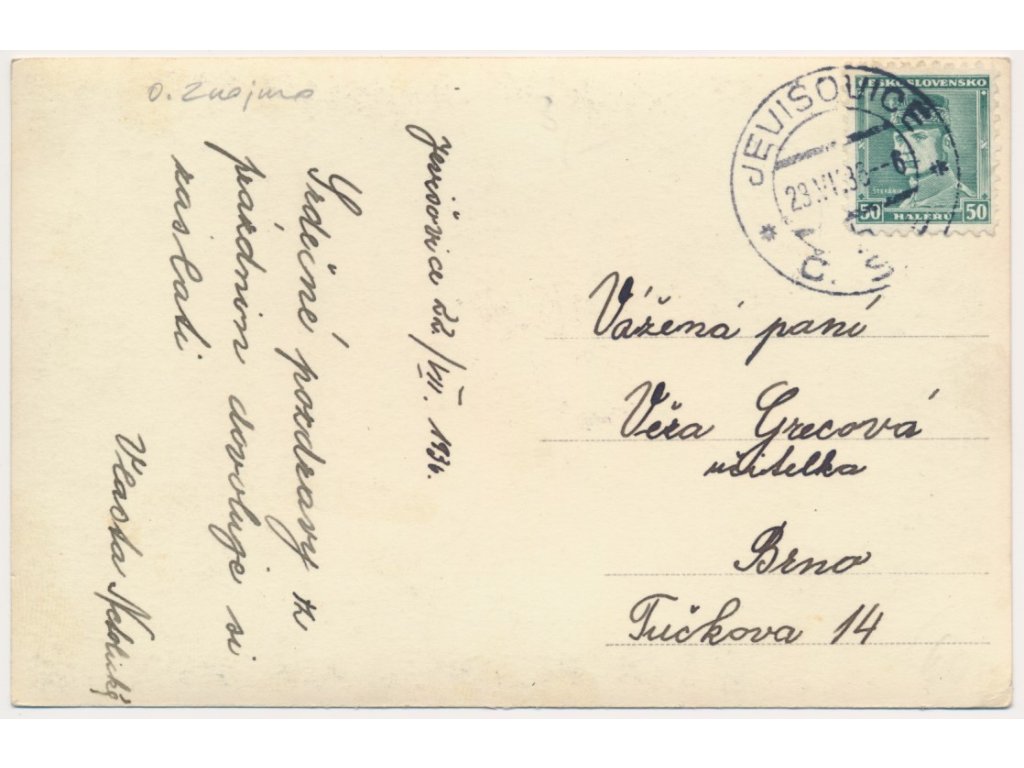 o. Znojmo
Jevišovice 22/VII. 1936.
Srdečné pozdravy z
prázdnin dovoluje si
zaslati
Vlasta
JEVIŠOVICE
23.VII.36.-6
Č.S.
ČESKOSLOVENSKO
ŠTEFÁNIK
50 HALÉŘŮ 50
Vážená paní
Věra Grecová
učitelka
Brno
Tučkova 14